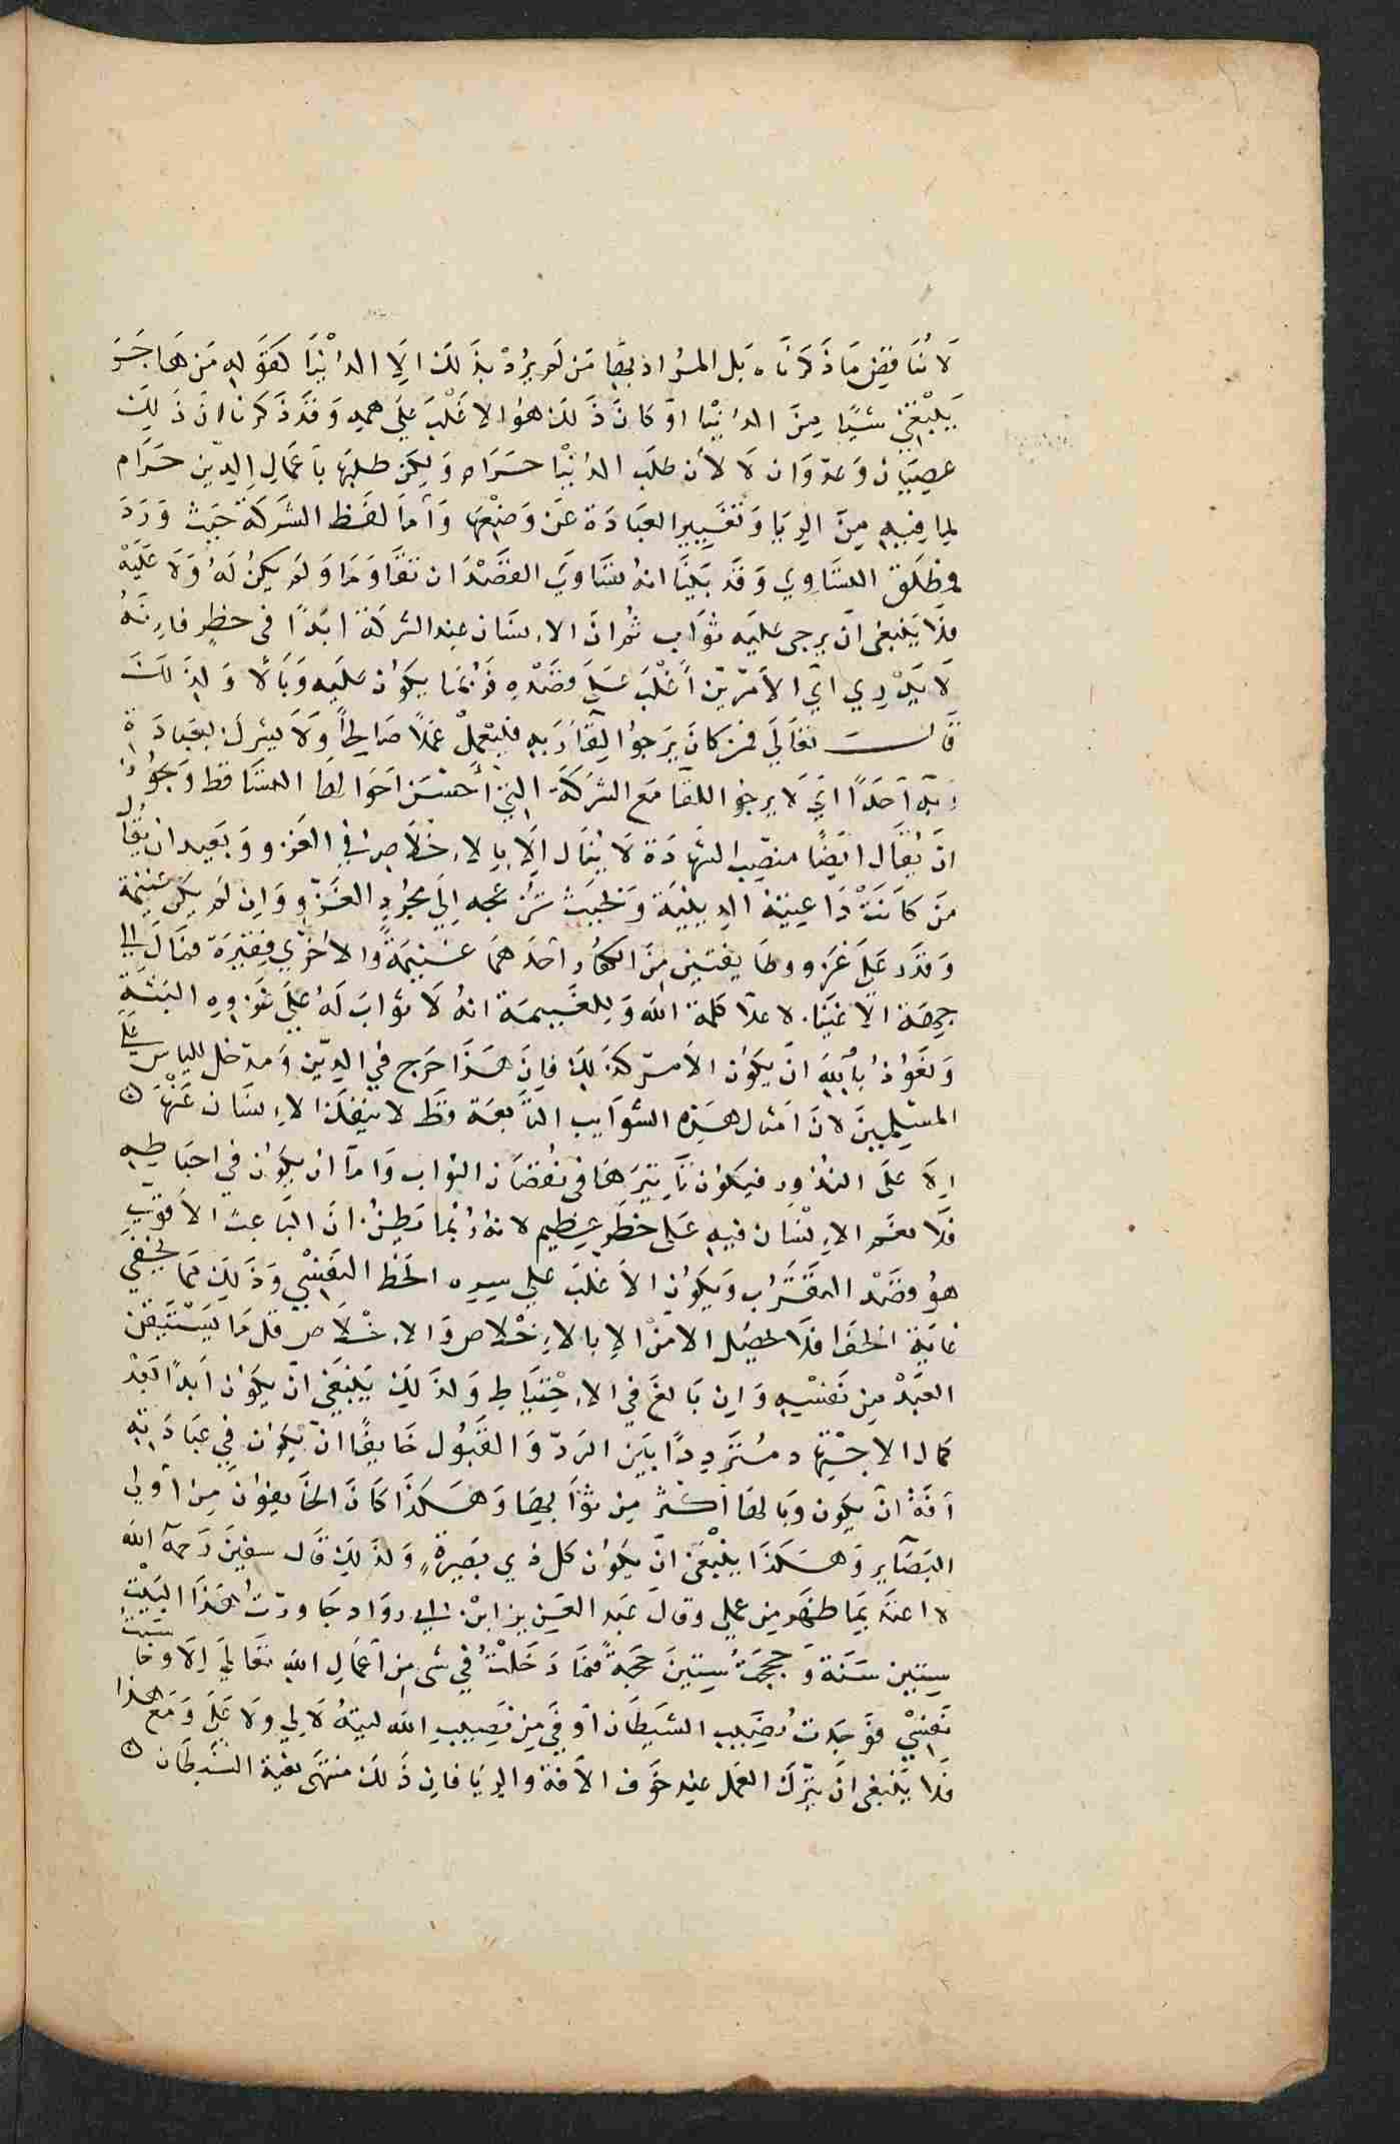 لَا تُنَاقِضْ مَا ذَكَرْنَاهُ بَلِ المُرَادُ بِهَا مَنْ لَمْ يُرِدْ بِذَلِكَ إِلَّا الدُّنْيَا كَقَوْلِهِ مَنْ هَاجَرَ
يَبْتَغِي شَيْئًا مِنَ الدُّنْيَا اوْ كَانَ ذَلِكَ هُوَ الاغْلَبَ عَلَى هَمِّهِ وَقَدْ ذَكَرْنَا انَّ ذَلِكَ
عِصْيَانٌ وَعُدْوَانٌ لَا لأَنَّ طَلَبَ الدُّنْيَا حَرَامٌ وَلَكِنْ طَلَبُهَا بِأَعْمَالِ الدِّينِ حَرَام
لِمَا فِيهِ مِنَ الرِّيَا وَتَغْيِيرِ العِبَادَةِ عَنْ وَضْعِهَا وَأَمَّا لَفْظُ الشَّرِكَةِ حَيْثُ وَرَدَ
فمُطْلَقُ التَّسَاوِي وَقَدْ بَيَّنَّا انه اذا تساوى القَصْدَانِ تَقَاوَمَا وَلَمْ يَكُنْ لَهُ وَلَا عَلَيْهِ
فَلَا يَنْبَغِي انْ يُرجى عليه ثَوَاب ثم ان الإنسَان عند الشركة ابَدًا فى خطر فإنه
لَا يَدْرِي أَيُّ الأَمْرَيْنِ أَغْلَبَ عَلَى قَصْدِهِ فَرُبَّمَا يَكُونُ عَلَيْهِ وَبَالًا وَلِذَلِكَ
قَالَ تَعَالَى فَمَنْ كَانَ يَرْجُوا لِقَاءَ رَبِّهِ فَلْيَعْمَلْ عَمَلًا صَالِحًا وَلَا يُشْرِكْ بِعِبَادَةِ
رَبِّهِ أَحَدًا أَيْ لَا يرجو اللقَا مَعَ الشَّرِكَةِ الَّتِي أَحْسَنُ أَحْوَالِهَا التسَاقط وَيجوز
انْ يُقَالَ ايْضًا مَنْصِبُ الشَّهَادَةِ لَا يُنَالُ إِلَّا بِالإِخْلَاصِ فِي الغَزْوِ وَبَعِيد ان يُقَال
مَنْ كَانَتْ دَاعِيَتُهُ الدِّينِيَّةُ بحَيْثُ تُزْعِجُهُ إِلَى مُجَرَّدِ الغَزْوِ وَإِنْ لَمْ يَكُنْ غنيمة
وَقَدَرَ عَلَى غَزْوِ طَايِفَتَيْنِ مِنَ الكُفَّارِ أَحَدُهُمَا غَنِيمَةٌ وَالأُخْرَى فَقِيرَةٌ فَمَالَ الى
جِهَةِ الأَغْنِيَاءِ لاعلا كلمة الله وَلِلغَنِيمَةِ انهُ لَا ثَوَابَ لَهُ عَلَى غَزْوِهِ البَتَّةَ
وَنَعُوذُ بِاللهِ انْ يَكُونَ الأَمْرُ كَذَلِكَ فَإِنَّ هَذَا حَرَجٌ فِي الدِّينِ وَمَدْخَلٌ لليَاس عَلَى
المُسْلِمِينَ لأنَّ أَمْثَالَ هَذِهِ الشَّوَايِبِ التَّابِعَةِ قَطُّ لَا يَنْفَكُّ الإِنْسَانُ عَنْهَا
إِلَّا عَلَى النُّدُورِ فَيَكُونُ تَأْثِيرُهَا فى نُقْصَانِ الثواب وَأَمَّا انْ يَكُونَ فِي احْبَاطِهِ
فَلَا نَعَمِ الإِنْسَانُ فِيهِ عَلَى خَطَرٍ عَظِيمٍ لأنه رُبَّمَا يَظُنُّ انَّ البَاعِثَ الأَقْوَى
هُوَ قَصْدُ التَّقَرُّبِ وَيَكُونُ الأَغْلَبَ عَلَى سِرِّهِ الحَظُّ النَّفْسِيُّ وَذَلِكَ مِمَّا يَخْفَى
غَايَةَ الخَفَا فَلَا يحصُلُ الأَمْنُ إِلَّا بالإِخْلَاصِ وَالإِخْلَاصُ قَلَّ مَا يَسْتَيْقِنُ
العَبْدُ مِنْ نَفْسِهِ وَإِنْ بَالَغَ فِي الاحْتِيَاطِ وَلِذَلِكَ يَنْبَغِي انْ يَكُونَ أَبَدًا بَعْدَ
كَمَالِ الاجْتِهَادِ مُتَرَدِّدًا بَيْنَ الرَّدِّ وَالقَبُولِ خَايِفًا انْ يَكُونَ فِي عِبَادَتِهِ
آفَةٌ انْ يَكُونَ وَبَالُهَا أَكْثَرَ مِنْ ثَوَابِهَا وَهَكَذَا كَانَ الخَايِفُونَ مِنْ أُولِي
البَصَايِرِ وَهَكَذَا يَنْبَغِي انْ يَكُونَ كُلُّ ذِي بَصِيرَةٍ وَلِذَلِكَ قَالَ سفين رَحمه الله
لَا أعتد بِمَا ظَهَرَ مِنْ عَمَلِي وَقَالَ عَبْدُ العَزِيز ابْنُ ابي روَّاد جَاورتُ هَذَا البَيْت
سِتِّينَ سَنَةً وَحَجَجْتُ سِتِّينَ حَجَّةً فَمَا دَخَلْتُ فِي شَيْءٍ مِنْ أَعْمَالِ اللهِ تَعَالَى إِلَّا وَحَاسبت
نَفْسِي فَوَجَدْتُ نَصِيبَ الشَّيْطَانِ أَوْفَى مِنْ نَصِيبِ اللهِ لَيْتَهُ لَا لِي وَلَا عَلَيَّ وَمَعَ هذا
فَلَا يَنْبَغِي انْ يَتْرُكَ العَمَلَ عِنْدَ خَوْفِ الآفَةِ وَالرِّيَا فَإِنَّ ذَلِكَ مُنْتَهَى بغية الشَّيْطَانِ